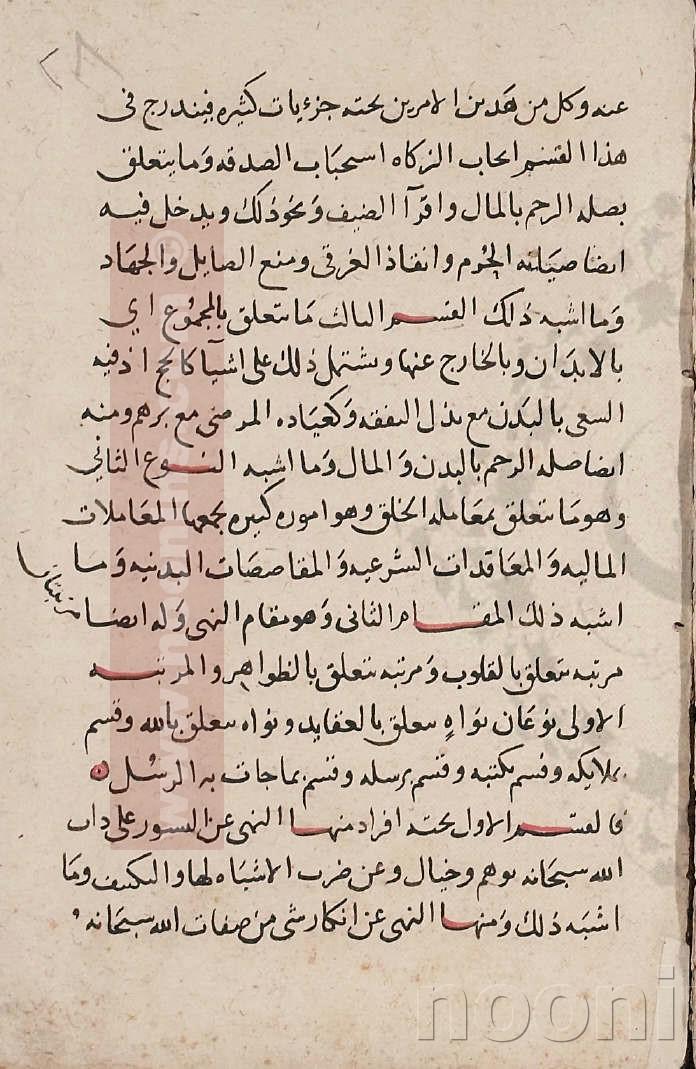 عنه وكل من هذين الامرين تحته جزئيات كثيره فيندرج فى
هذا القسم ايجاب الزكاه استحباب الصدقه وما يتعلق
بصله الرحم بالمال واقرآ الضيف ونحو ذلك ويدخل فيه
ايضا صيانه الحُرم وانقاذ الغرقى ومنع الصايل والجهاد
وما اشبه ذلك القسم الثالث ما يتعلق بالمجموع اي
بالابدان وبالخارج عنها ويشتمل ذلك على اشيآ كالحج اذ فيه
السعى بالبدن مع بذل النفقه وكعياده المرضى مع برهم ومنه
ايضا صله الرحم بالبدن والمال وما اشبه النوع الثاني
وهو ما يتعلق بمعامله الخلق وهو اموره كثيره يجمعها المعاملات
الماليه والمعاقدات الشرعيه والمقاصصات البدنيه وما
اشبه ذلك المقام الثانى وهو مقام النهى وله ايضا
مرتبتان
مرتبه تتعلق بالقلوب ومرتبه تتعلق بالظواهر والمرتبه
الاولى نوعان نواهٍ تتعلق بالعقايد ونواه تتعلق بالله وقسم
بملايكه وقسم بكتبه وقسم برسله وقسم بما جات به الرسُل
فالقسم الاول تحته افراد منها النهى عن التسور على ذات
الله سبحانه بوهم وخيال وعن ضرب الاشباه لها والتكييف وما
اشبه ذلك ومنها النهى عن انكار شى من صفات الله سبحانه
nooni